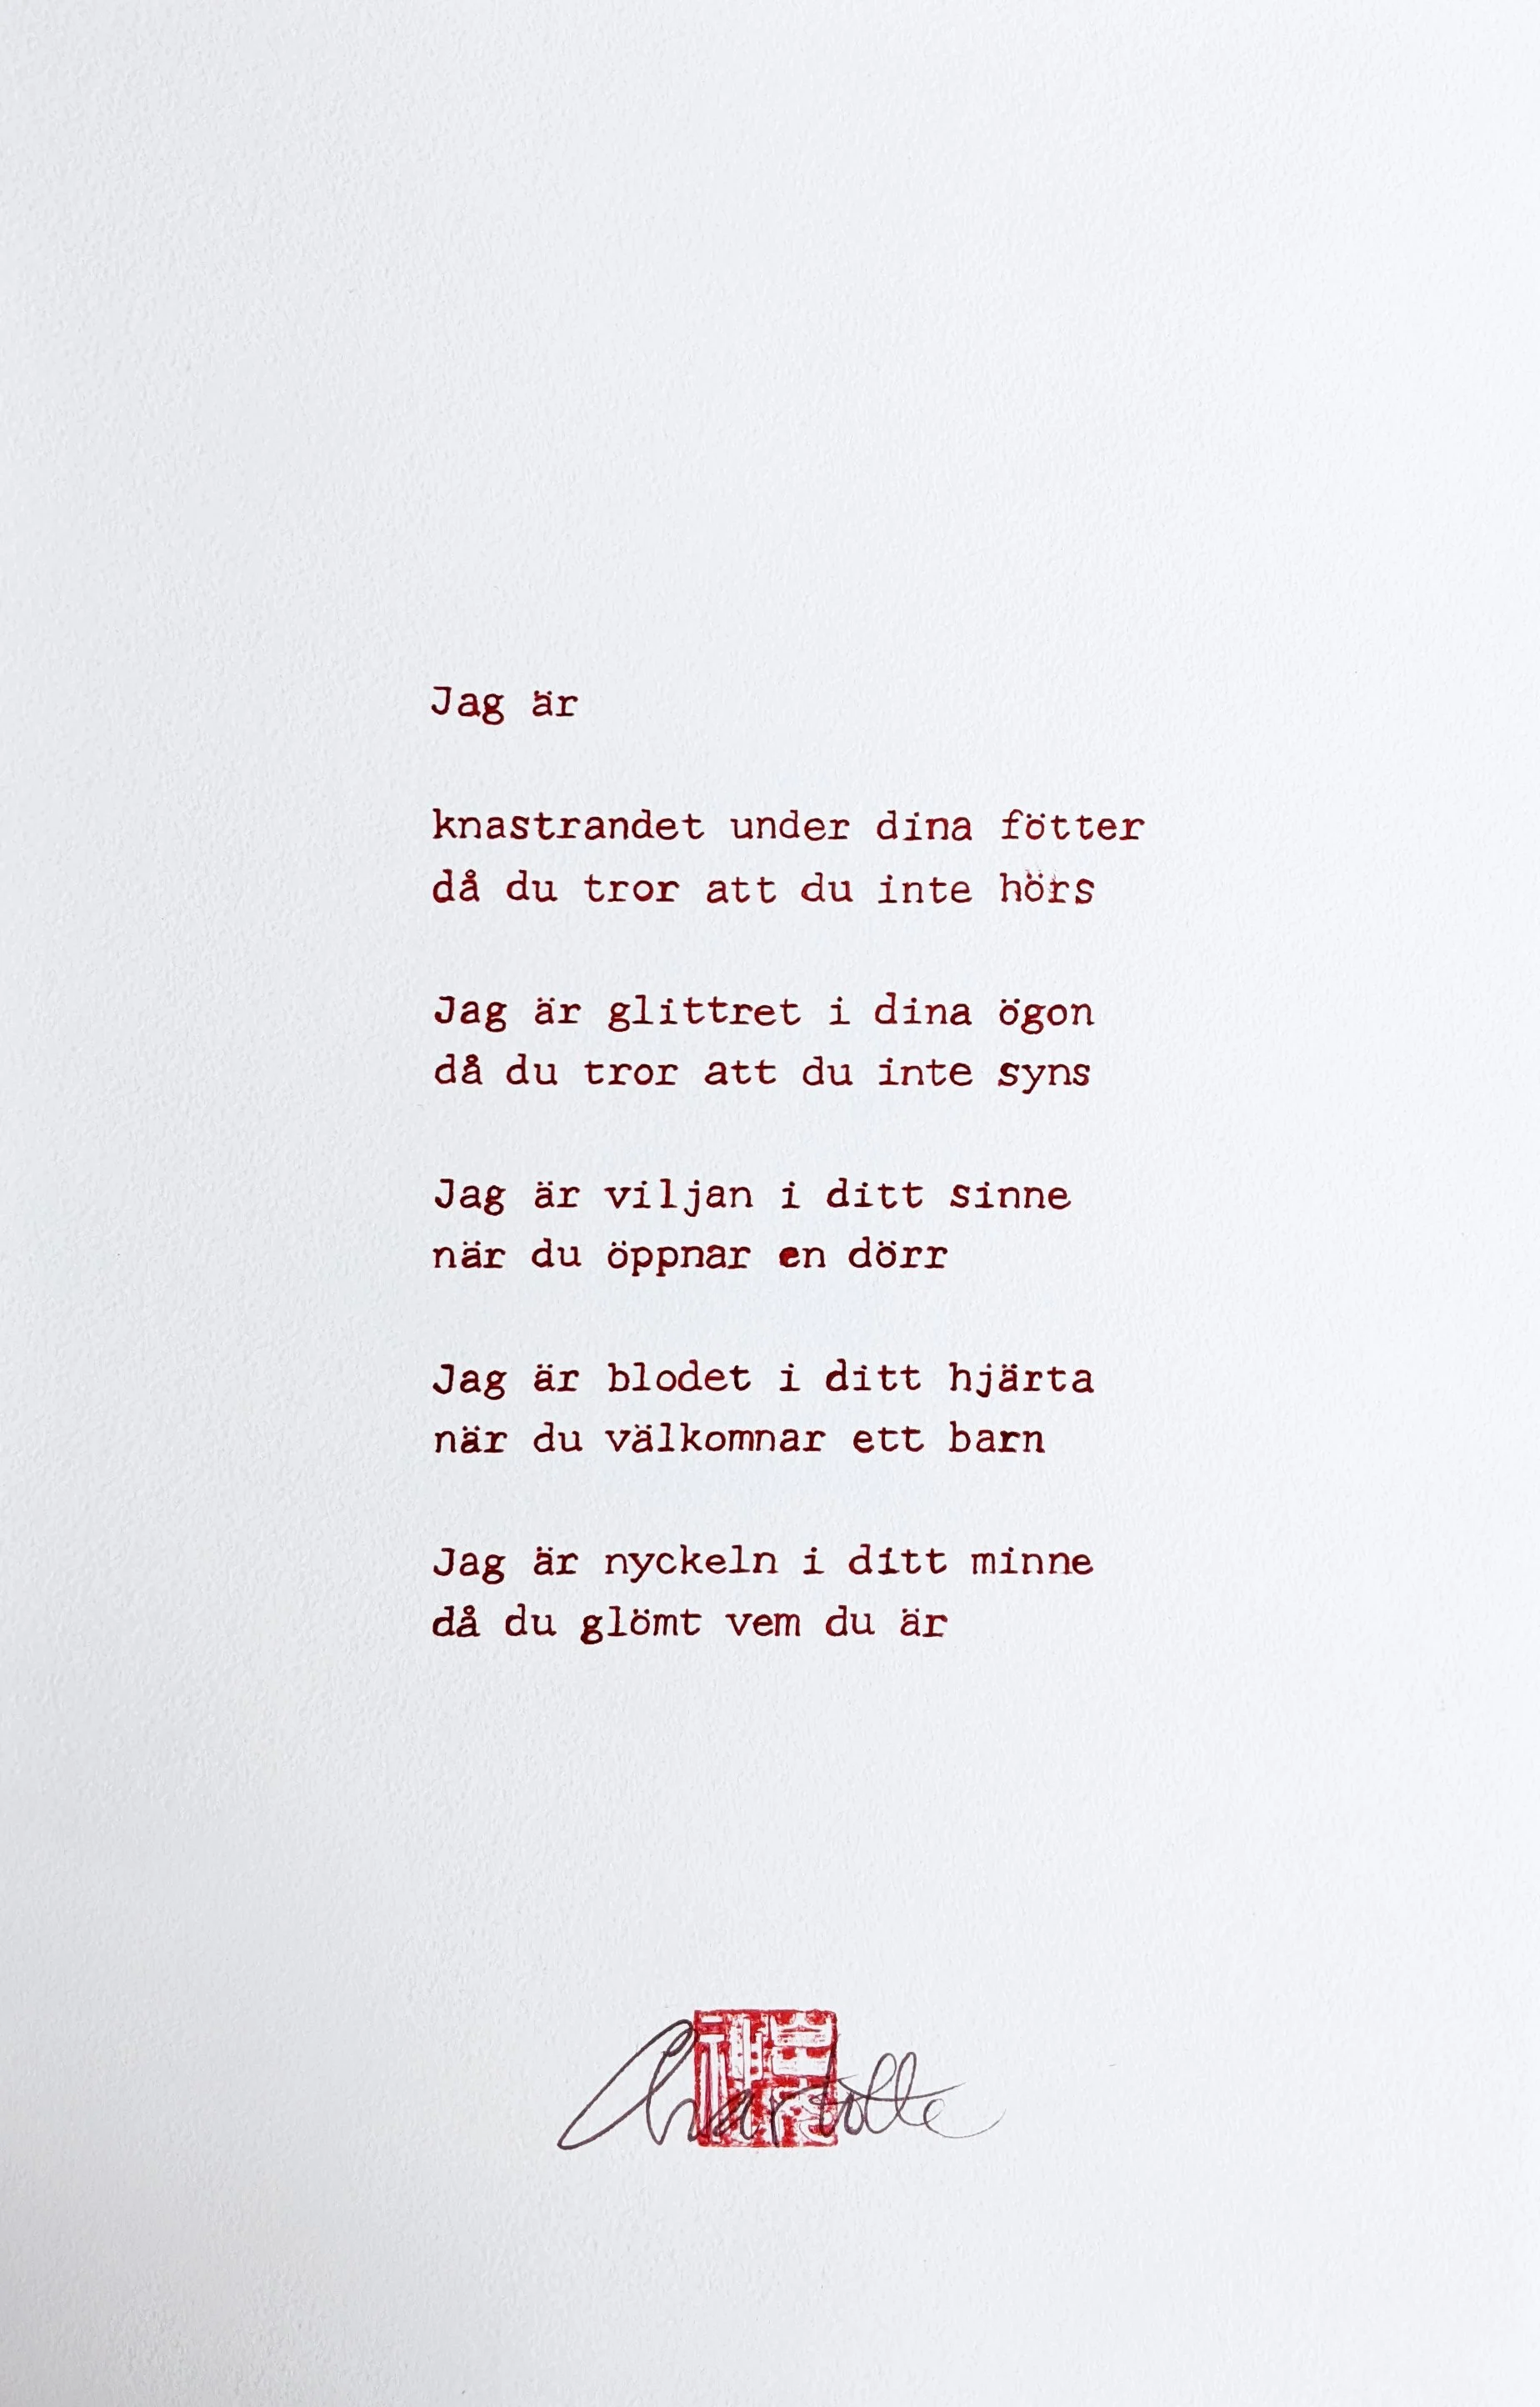 Jag är
knastrandet under dina fötter
då du tror att du inte hörs
Jag är glittret i dina ögon
då du tror att du inte syns
Jag är viljan i ditt sinne
när du öppnar en dörr
Jag är blodet i ditt hjärta
när du välkomnar ett barn
Jag är nyckeln i ditt minne
då du glömt vem du är
Charlotte